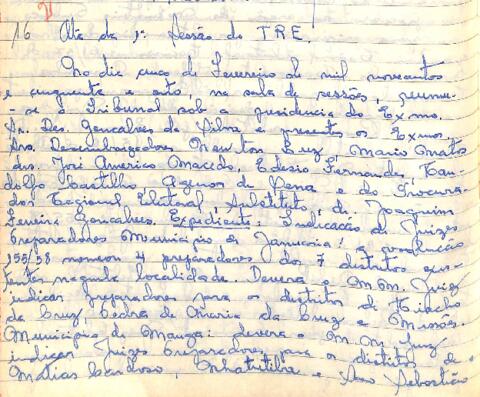 16 Ata da 1ª Sessão do TRE.
No dia cinco de Fevereiro de mil novecentos
e cinquenta e oito, na sala de sessões, reuniu-
-se o Tribunal sob a presidencia do Exmo.
Sr. Des. Gonçalves da Silva e presentes os Exmos.
Srs. Desembargadores Newton Luz, Mario Matos
drs. José Americo Macedo, Edesio Fernandes, Can-
dido Castilho Agenor de Sena e do Procura-
dor Regional Eleitoral, Substituto, dr. Joaquim
Ferreira Gonçalves. Expediente: Indicação de Juizes
Preparadores Municipio de Januaria: a
155/58 nomeou 4 preparadores dos 7 distritos exis-
tentes naquela localidade. Deverá o MM. Juiz
indicar preparadores para os distritos de Riacho
da Cruz, Pedra de Maria da Cruz e Missões.
Municipio de Manga: deverá o M.M. Juiz
indicar Juizes Preparadores para os distritos de
Matias Cardoso, e São Sebastião